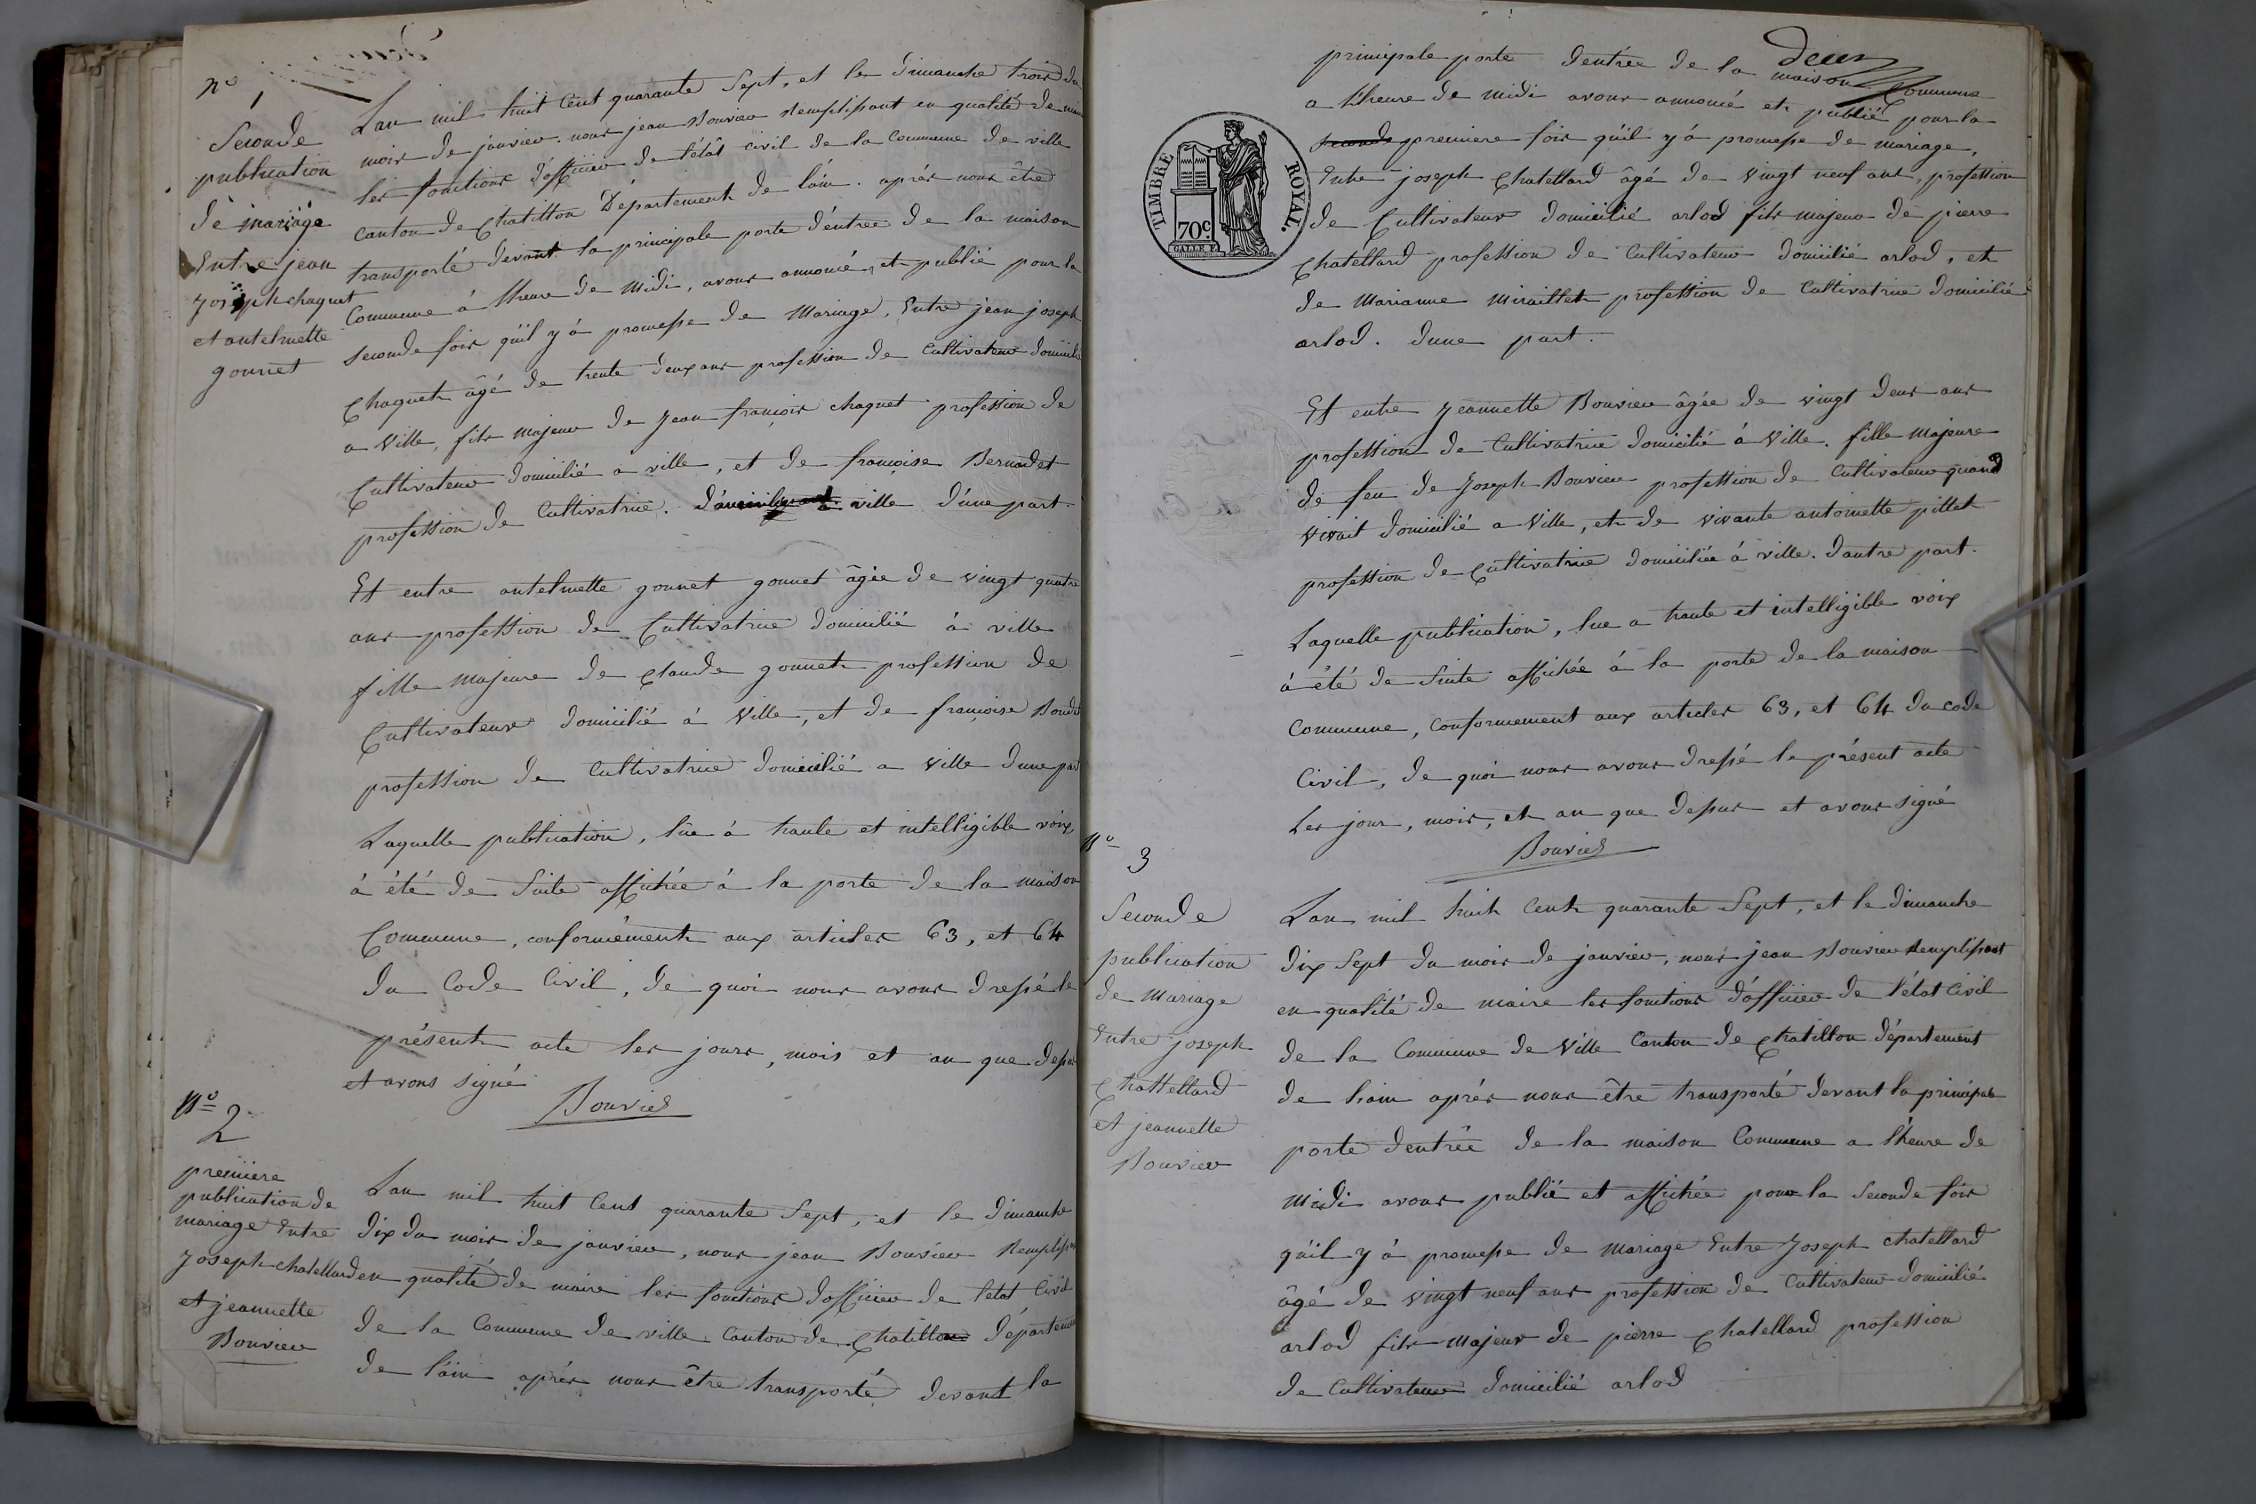 nº
1
Seconde
publication
de mariage
Entre jean
joseph chaquet
et antelmette
gonnet
Lan mil huit Cent quarante Sept, et le dimanche trois du
mois de janvier. nous jean Bouvier Remplissant en qualité de maire
les fonctions d'officier de l'état civil de la Commune de ville
canton de Chatillon Département de l'ain. aprés nous être
transporté devant la principale porte d'entrée de la maison
Commune à lheure de Midi, avons annoncé, et publié pour la
seconde fois quil y á promesse de Mariage, Entre jean joseph
Chaquet âgé de trente deux ans profession de Cultivateur domicilié
a Ville, fils majeur de Jean françois chaquet profession de
Cultivateur domicilié a ville, et de francoise Bernadet
profession de Cultivatrice. ville d'une part.
Et entre antelmette gonnet gonnet âgée de vingt quatre
ans profession de Cultivatrice domicilié à ville
fille majeure de Claude gonnet profession de
Cultivateur domicilié à Ville, et de françoise
profession de Cultivatrice domicilié a Ville dune part
Laquelle publication, lue à haute et intelligible voix,
à été de Suite affichée à la porte de la maison
Commune, conformément aux articles 63, et 64
du Code Civil, de quoi nous avons dressé le
présent acte les jours, mois et an que dessus
et avons signé
Bouvier
Nº
2
premiere
publication de
mariage Entre
Joseph chatellard
et jeannette
Bouvier
Lan mil huit Cent quarante Sept, et le dimanche
dix du mois de janvier, nous jean Bouvier Remplissant
en qualité de maire les fonctions dofficier de letat Civil
de la Commune de ville Canton de Chatillon département
de l'ain aprés nous être transporté devant la
deux
principale porte dentrée de la maison Commune
a lheure de midi avons annoncé et publié pour la
seconde premiere fois quil y á promesse de mariage,
Entre joseph Chatellard âgé de vingt neuf ans, profession
de Cultivateur domicilié arlod fils majeur de pierre
Chatellard profession de Cultivateur domicilié arlod, et
de Marianne Miraillet profession de Cultivatrice domicilié
arlod. dune part.
TIMBRE ROYAL.
70c.
GALLE F.
Et entre Jeannette Bouvier âgée de vingt deux ans
profession de Cultivatrice domicilié á Ville. fille Majeure
de feu de Joseph Bouvier profession de Cultivateur quand
vivait domicilié a Ville, et de vivante antoinette pillet
profession de Cultivatrice domiciliée á ville. dautre part.
Laquelle publication, lue a haute et intelligible voix
á été de Suite affichée á la porte de la maison
Commune, conformement aux articles 63, et 64 du code
Civil, de quoi nous avons dressé le présent acte
Les jour, mois, et an que dessus et avons signé
Bouvier
Nº
3
Seconde
publication
de Mariage
Entre joseph
Chattellard
et jeannette
Bouvier
Lan mil huit Cent quarante Sept, et le dimanche
dix Sept du mois de janvier, nous jean Bouvier Remplissant
en qualité de maire les fonctions d'officier de l'état Civil
de la Commune de Ville Canton de Chatillon département
de l'ain aprés nous être transporté devant la principale
porte dentrée de la maison Commune a lheure de
Midi avons publié et affichée pour la Seconde fois
quil y á promesse de Mariage Entre Joseph chatellard
âgé de vingt neuf ans profession de Cultivateur domicilié
arlod fils Majeur de pierre Chatellard profession
de Cultivateur domicilié arlod